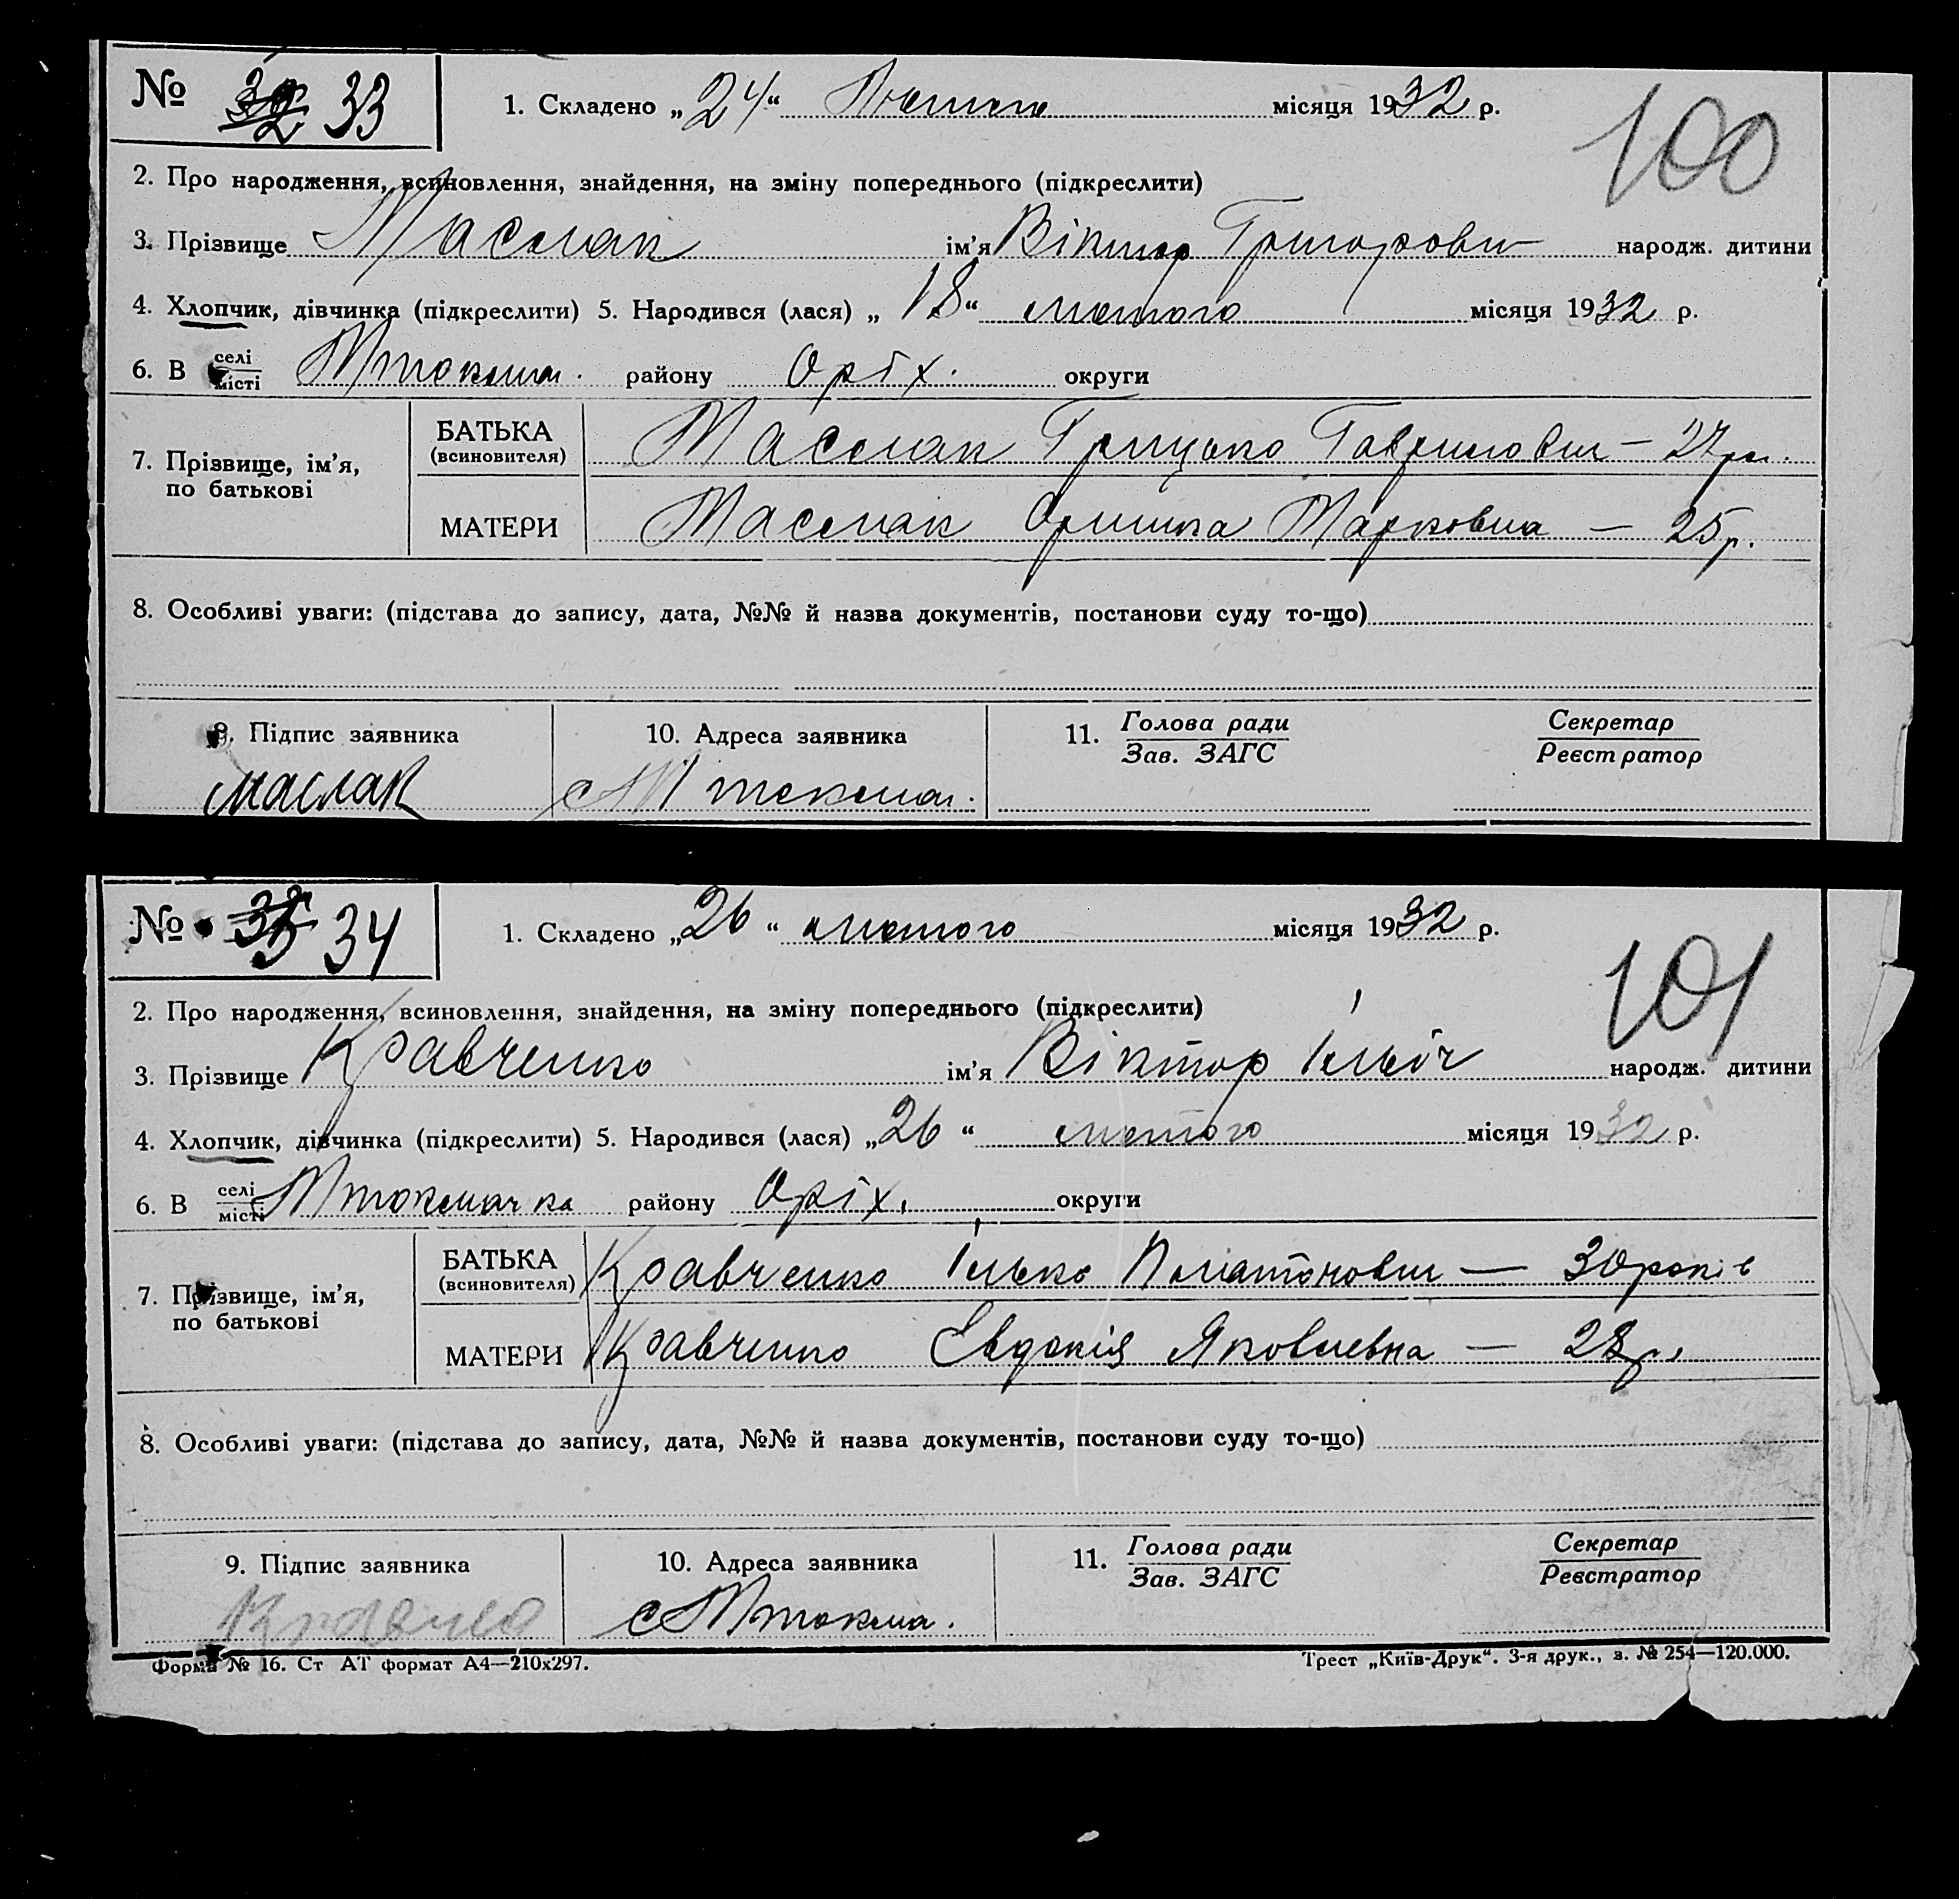 № 33
1. Складено „24“ Лютого місяця 1932 р.
100
2. Про народження, всиновлення, знайдення, на зміну попереднього (підкреслити)
3. Прізвище Маслак ім’я Віктор Григорович народж. дитини
4. Хлопчик, дівчинка (підкреслити) 5. Народився (лася) „18“ лютого місяця 1932 р.
6. В селі місті Мтокма. району Оріх. округи
7. Прізвище, ім’я, по батькові
БАТЬКА (всиновителя) Маслак Грицько Гаврилович — 27 р.
МАТЕРИ Маслак Оришка Марковна — 25 р.
8. Особливі уваги: (підстава до запису, дата, №№ й назва документів, постанови суду то-що)
9. Підпис заявника 10. Адреса заявника 11. Голова ради Секретар
Зав. ЗАГС Реєстратор
Маслак с Мтокма.
№ 34
1. Складено „26“ лютого місяця 1932 р.
101
2. Про народження, всиновлення, знайдення, на зміну попереднього (підкреслити)
3. Прізвище Кравченко ім’я Віктор Ільіч народж. дитини
4. Хлопчик, дівчинка (підкреслити) 5. Народився (лася) „26“ лютого місяця 1932 р.
6. В селі місті Мтокмачка району Оріх. округи
7. Прізвище, ім’я, по батькові
БАТЬКА (всиновителя) Кравченко Ілько Платонович — 30 років
МАТЕРИ Кравченко Евдокія Яковлевна — 28 р.
8. Особливі уваги: (підстава до запису, дата, №№ й назва документів, постанови суду то-що)
9. Підпис заявника 10. Адреса заявника 11. Голова ради Секретар
Зав. ЗАГС Реєстратор
с Мтокма.
Форма № 16. Ст АТ формат А4—210х297. Трест „Київ-Друк“. 3-я друк., з. № 254—120.000.